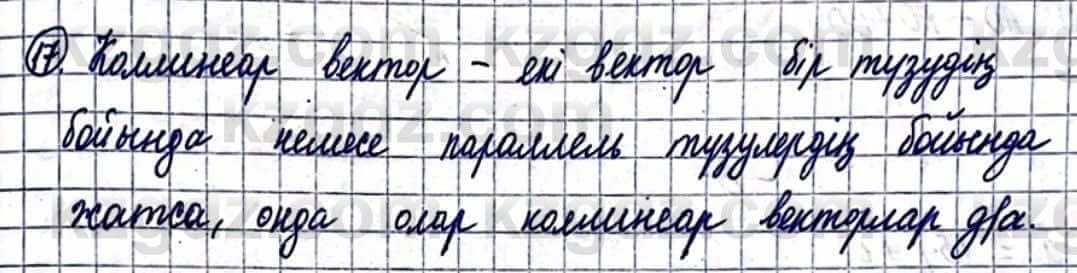 17. Коллинеар вектор - екі вектор бір түзудің
бойында немесе параллель түзулердің бойында
жатса, онда олар коллинеар векторлар д/а.